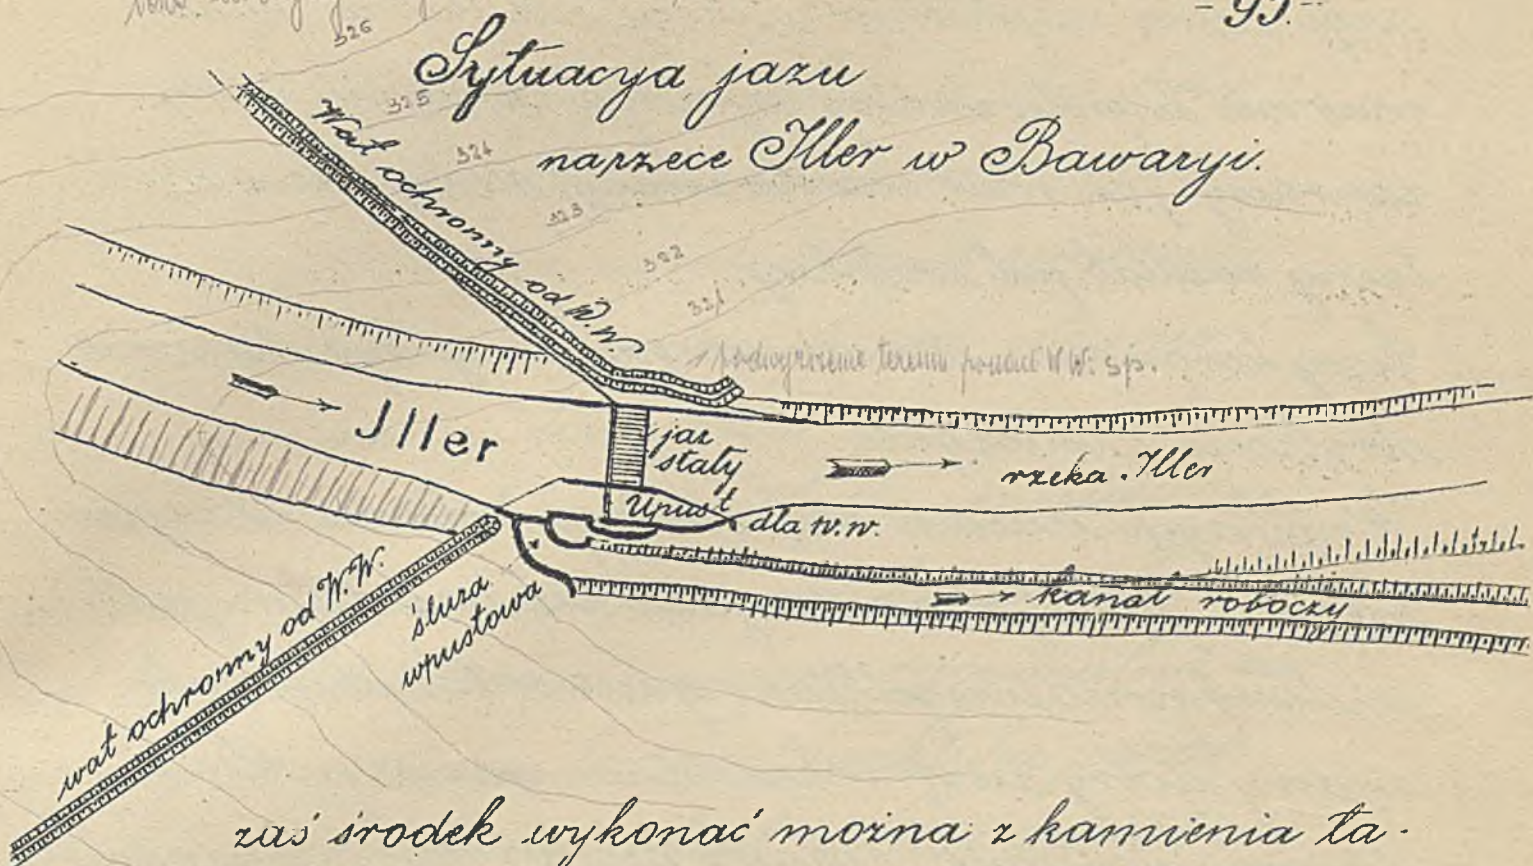 - 95 -
Sytuacya jazu
na rzece Iller w Bawaryi.
326
325
324
323
322
321
Wał ochronny od W.W.
terenu ponad W.W. sp.
Iller
jaz
stały
rzeka Iller
Upust
dla w.w.
śluza
wpustowa
kanał roboczy
wał ochronny od W.W.
zaś środek wykonać można z kamienia ła-